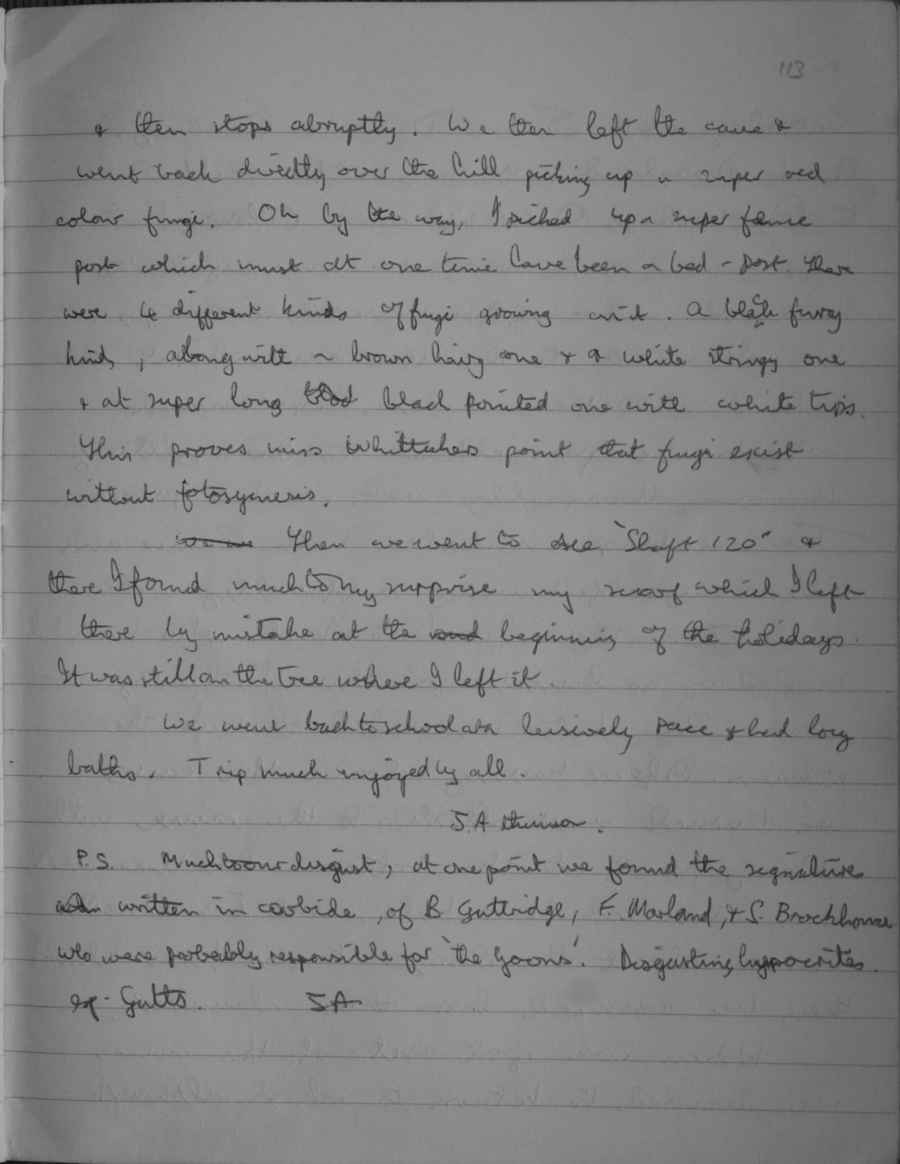 113
& then stops abruptly. We then left the cave &
went back directly over the hill picking up a super red
colour fungi. Oh by the way, I picked up a super fence
post which must at one time have been a bed-post. There
were 4 different kinds of fugi growing on it. A black furry
kind, along with a brown hairy one & a white stringy one
& at super long black pointed one with white tips.
This proves miss Whittakers point that fungi exist
without fotosynesis.
Then we went to see "Shaft 120" &
there I found much to my surprise my scarf which I left
there by mistake at the beginning of the holidays.
It was still on the tree where I left it.
We went back to school at a leisively pace & had long
baths. Trip much enjoyed by all.
S A
P.S. Much to our disgust, at one point we found the signatures
written in carbide, of B Guttridge, F. Marland, & S. Brockhouse
who were probably responsible for 'the goons'. Disgusting hyppocrites.
esp. Gutts. SA